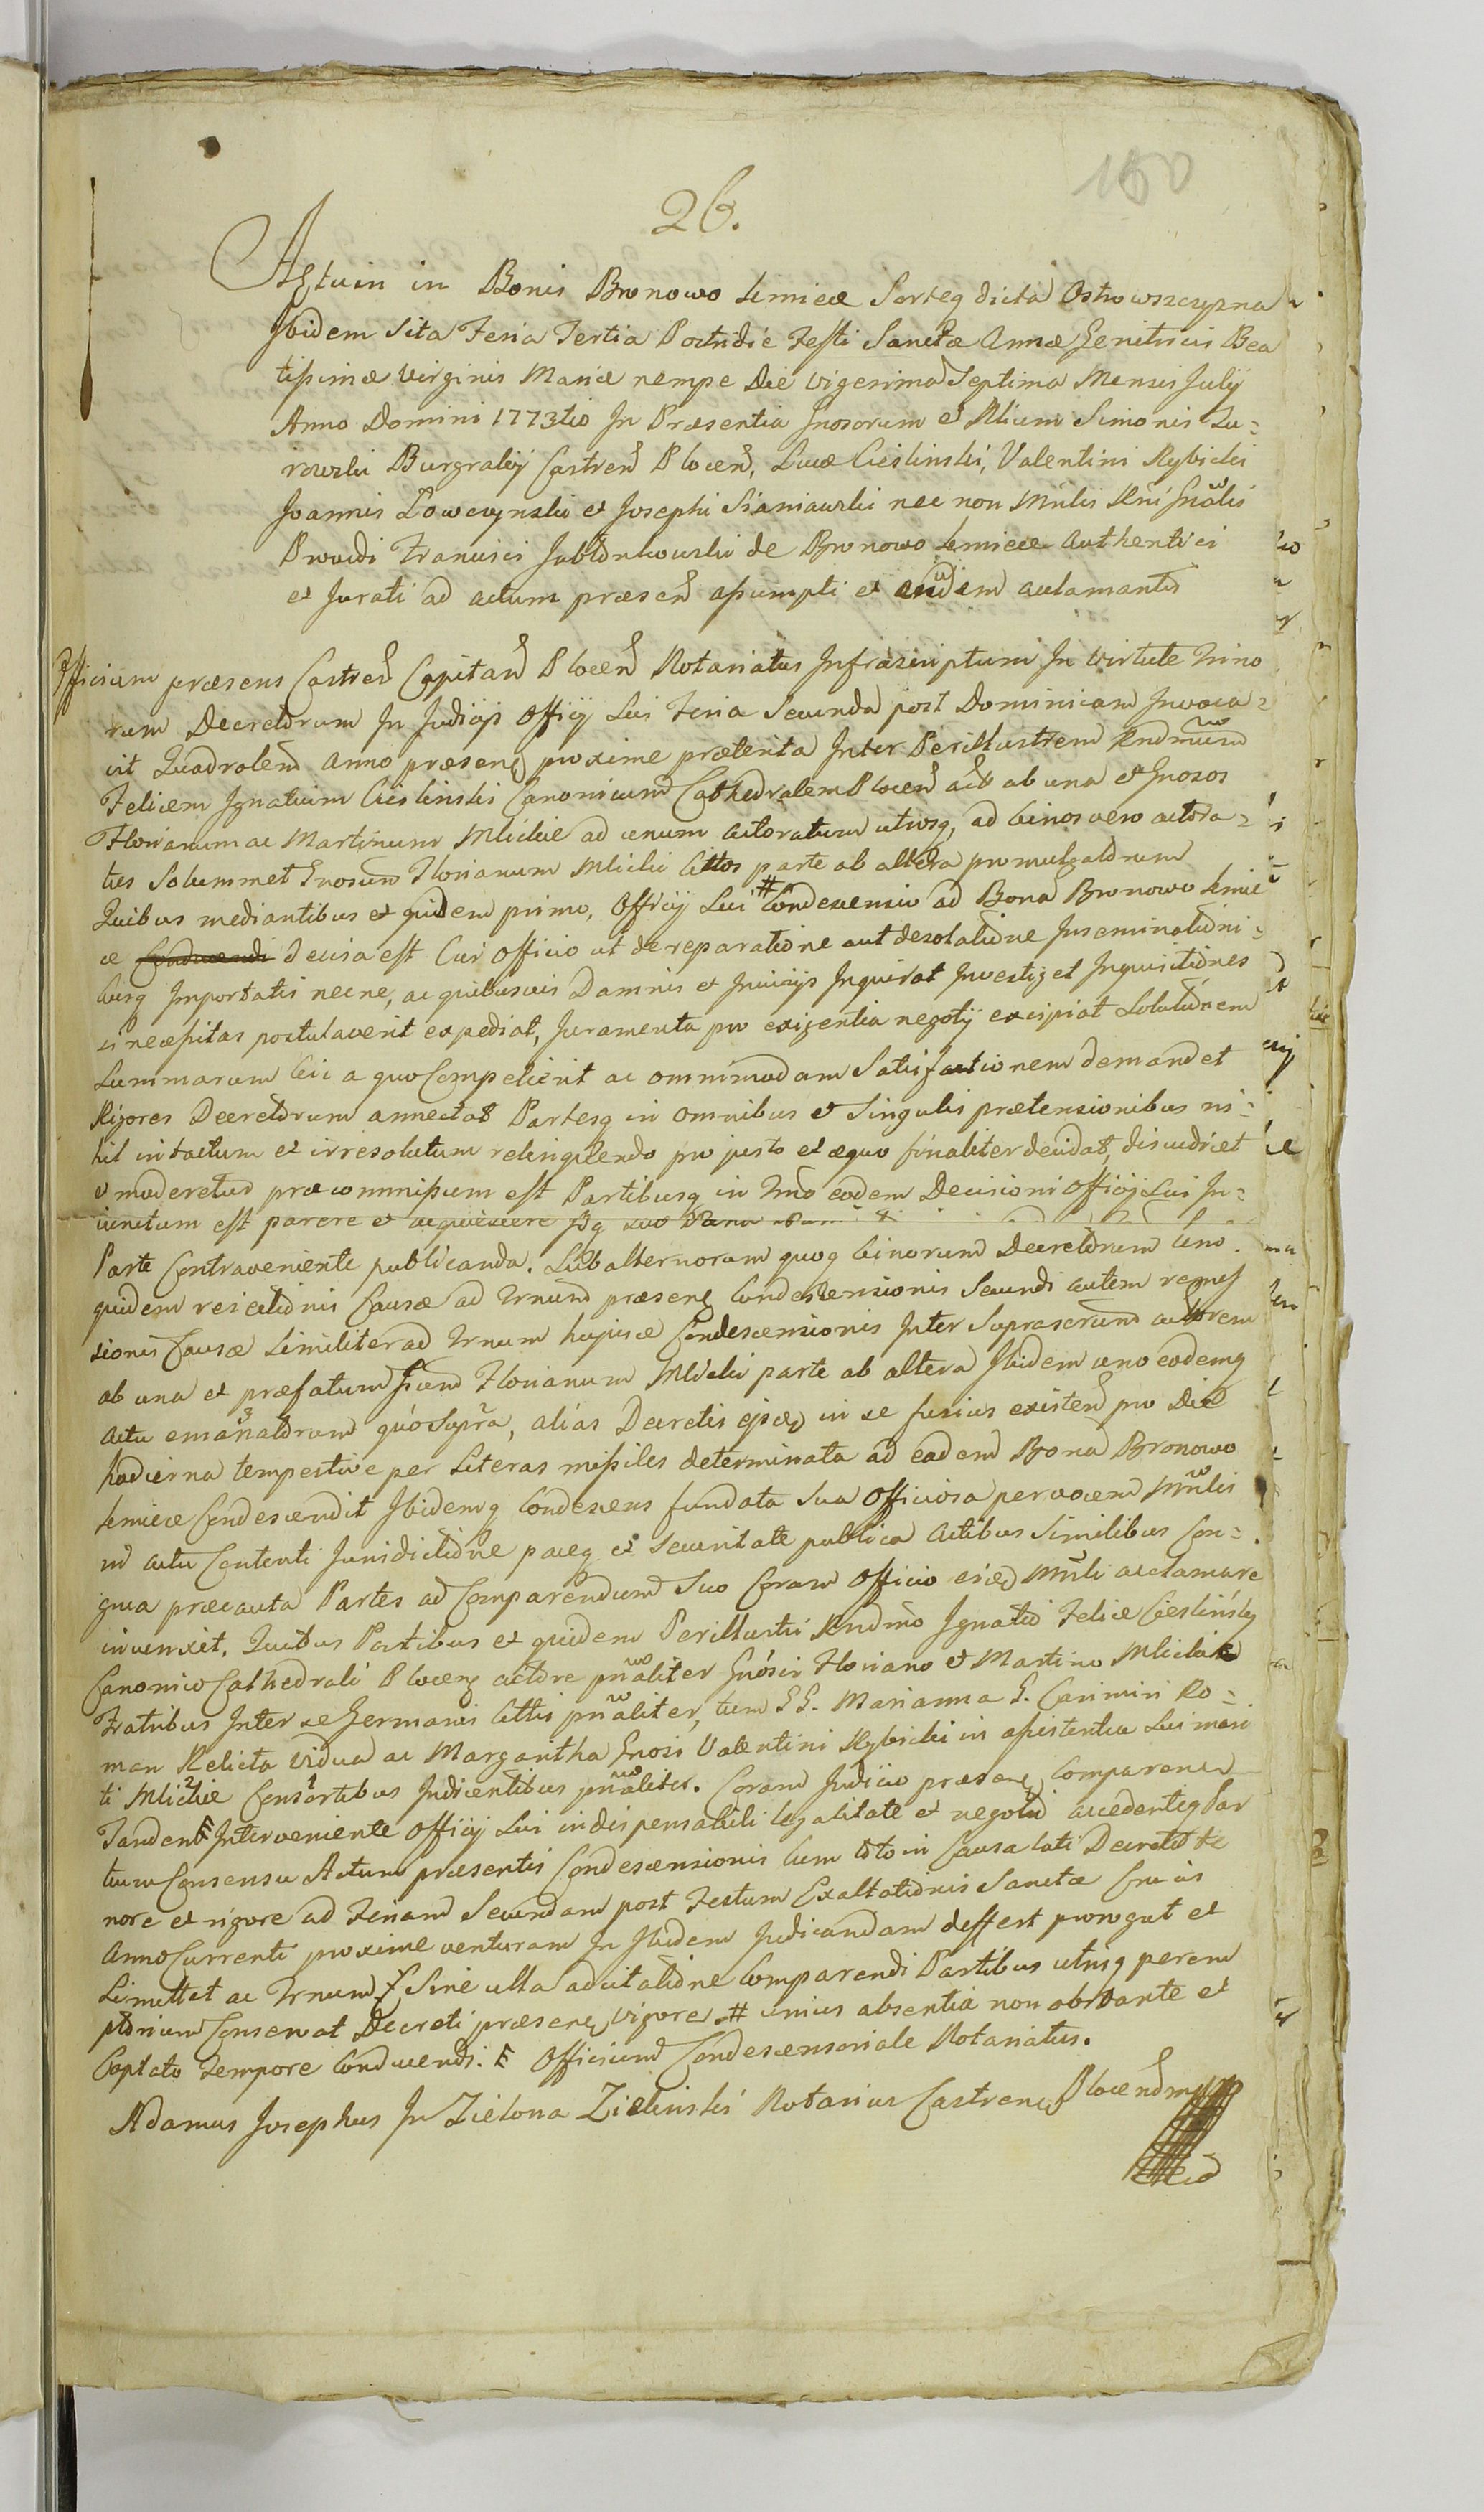 150
26.
Actum in Bonis Bronowo Kmiece Sorteq dicta Ostrowszczyzna
Ibidem Sita Feria Tertia Postridie Festi Sanctæ Annæ Genitricis Bea
tissimæ Virginis Mariæ nempe Die vigesima Septima Mensis Julÿ
Anno Domini 1773tio In Præsentia Gnosorum et Nlium Simonis Zu=
rawski Burgrabÿ Castreñ Ploceñ, Lucæ Cieslinski, Valentini Rybicki
Joannis Łowczynski et Josephi Sianiawski nec non Mnlis Rni Gnalis
Providi Francisci Jabłonkowski de Bronowo Kmiece Authentici
et Jurati ad actum præseñ assumpti et eundem acclamantis
Officium præsens Castreñ Capitaneñ Ploceñ Notariatus Infrascriptum In virtute Trino
rum Decretorum In Judicÿs Officÿ Sui Feria Secunda post Dominicam Invoca=
vit Quadrolem Anno præsenq proxime præterita Inter Perillustrem Rndmum
Felicem Ignatium Cieslinski Canonicum Cathedralem Ploceñ act ab una et Gnosos
Florianum ac Martinum Mlickie ad unum actoratum utrosq, ad binos vero actora=
tus Solummet Gnosum Florianum Mlicki Cittos parte ab altera promulgatorum
Quibus mediantibus et quidem primo, Officÿ Sui # Condescensio ad Bona Bronowo Kmie
ce decisa est Cui Officio ut de reparatione aut desolatione Inseminationi=
busq Importatis necne, ac quibusvis Damnis et Injurÿs Inquirat Investiget Inquisitiones
si necessitas postulaverit expediat, Juramenta pro exigentia negotÿ excipiat Solutionem
Summarum Cui a quo Competierit ac omnimodam Satisfactionem demandet
Rigores Decretorum annectat Partesq in omnibus et Singulis prætensionibus ni=
hil intactum et irresolutum relinquendo pro justo et æquo finaliter decidat, discutiet
et moderetur præcommissum est Partibusq in Tmo eodem Decisioni Officÿ Sui In=
iunctum est parere et acquiescere
Parte Contraveniente publicanda. Subalternorum quoq binorum Decretorum Uno
quidem reiectionis Causæ ad Trnum præsenq Condescensionis Secundi autem remis
sionis Causæ Similiter ad Trnum hujusce Condescensionis Inter Suprascriptum actorem
ab una et præfatum Florianum Mlicki parte ab altera Ibidem uno eodemq
actu emanatorum quo Supra, alias Decretis in se fusius existeñ pro Die
hodierna tempestive per Literas missiles determinata ad eadem Bona Bronowo
Kmiece Condescendit Ibidemq Condescens fundata Sua Officiosa per vocem Mnlis
in actu Contenti Jurisdictione paceq et Securitate publica actibus Similibus Con=
grua præcauta Partes ad Comparendum Suo Coram Officio Mnli acclamare
inuenxit. Quibus Partibus et quidem Perillustri Rndmo Ignatio Felice Cieslinsky
Canonico Cathedrali Ploceñ actore pnaliter Gnosis Floriano et Martino Mlickie
Fratribus Inter se Germanis Cittis pnaliter, tum GG. Marianna G. Casimiri Ro=
man Relicta Vidua ac Margaritha Gnosi Valentini Rybicki in assistentia Sui mari
ti Mlickie Consortibus Judicentibus pnaliter. Coram Judicio præsenq Comparenñ
Tandem Interveniente Officÿ Sui indispensabili legalitate et negotii accedenteq Par
tium Consensu Actum præsentis Condescensionis Cum toto in Causa lati Decreti te
nore et rigore ad Feriam Secundam post Festum Exaltationis Sanctæ Crucis
Anno Currenti proxime venturam In Ibidem Judicandam differt prorogat et
Limittat ac Trnum Sine ulla adcitatione Comparendi Partibus utrisq perem
ptorium Conservat Decreti præsenq vigore. # unius absentia non obstante et
Captato Tempore Conducendi. Officium Condescensoriale Notariatus.
Adamus Josephus In Zielona Zielinski Notarius Castrensis Ploceñ mpp